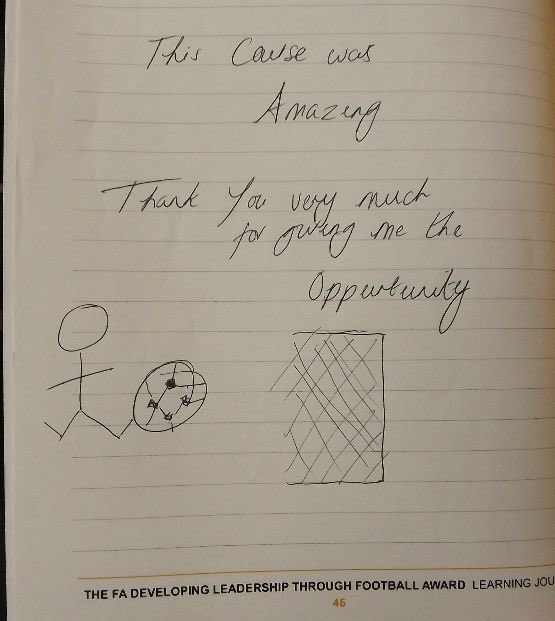 This Cause was
Amazing
Thank You very much
for giving me the
Oppurtunity
THE FA DEVELOPING LEADERSHIP THROUGH FOOTBALL AWARD LEARNING JOU
46